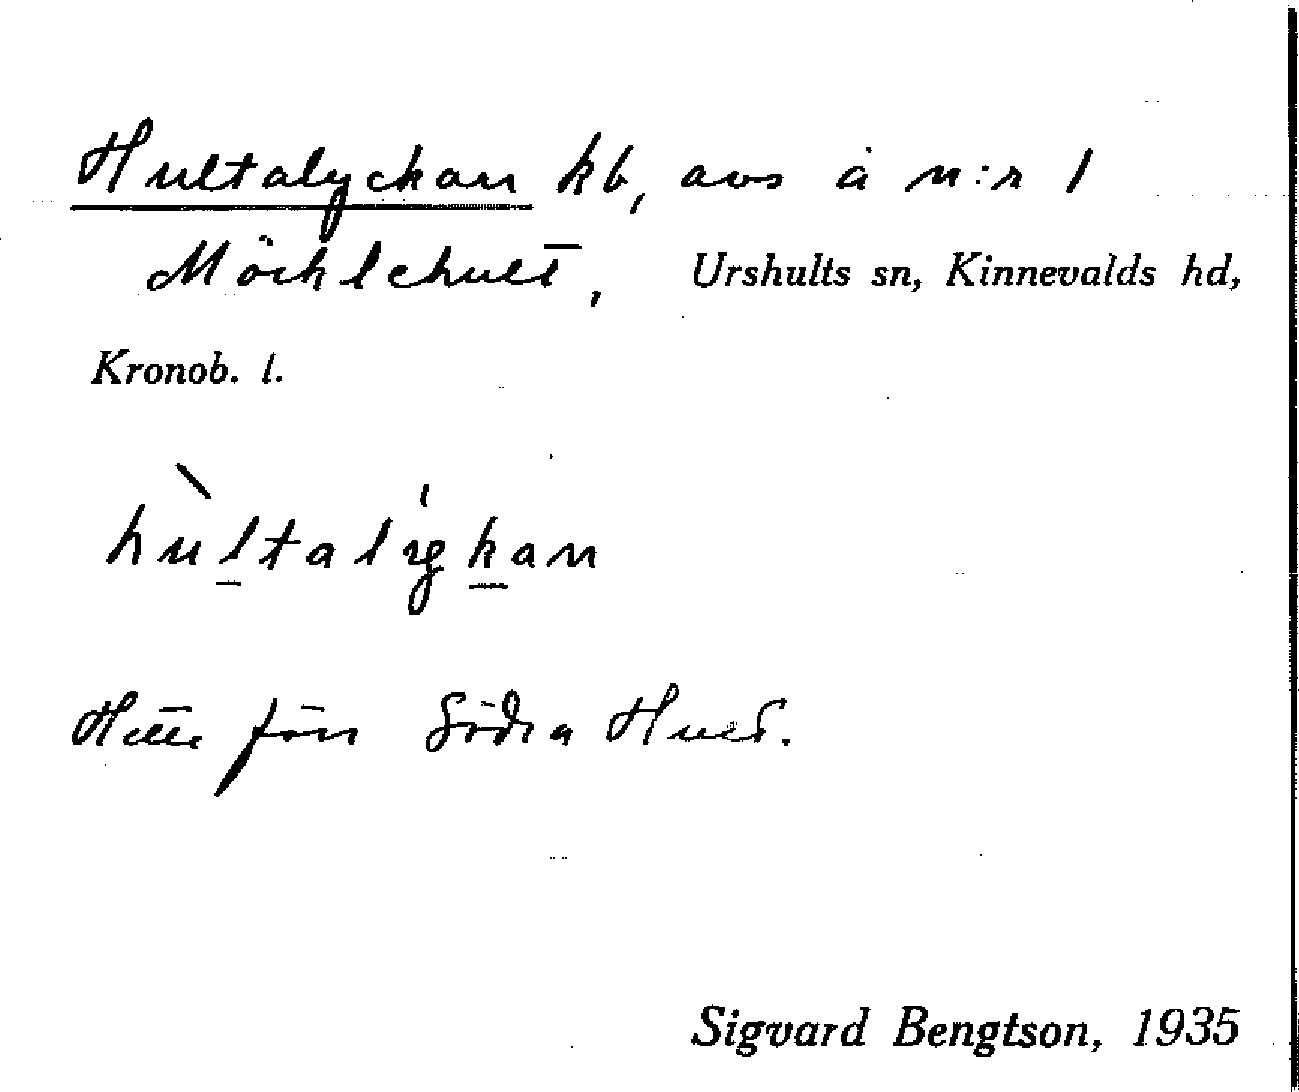 Hultalyckan kb, avs å n:r 1
Möcklehult, Urshults sn, Kinnevalds hd,
Kronob. l.
hùltalykan
Hette förr Södra Hult.
Sigvard Bengtson, 1935